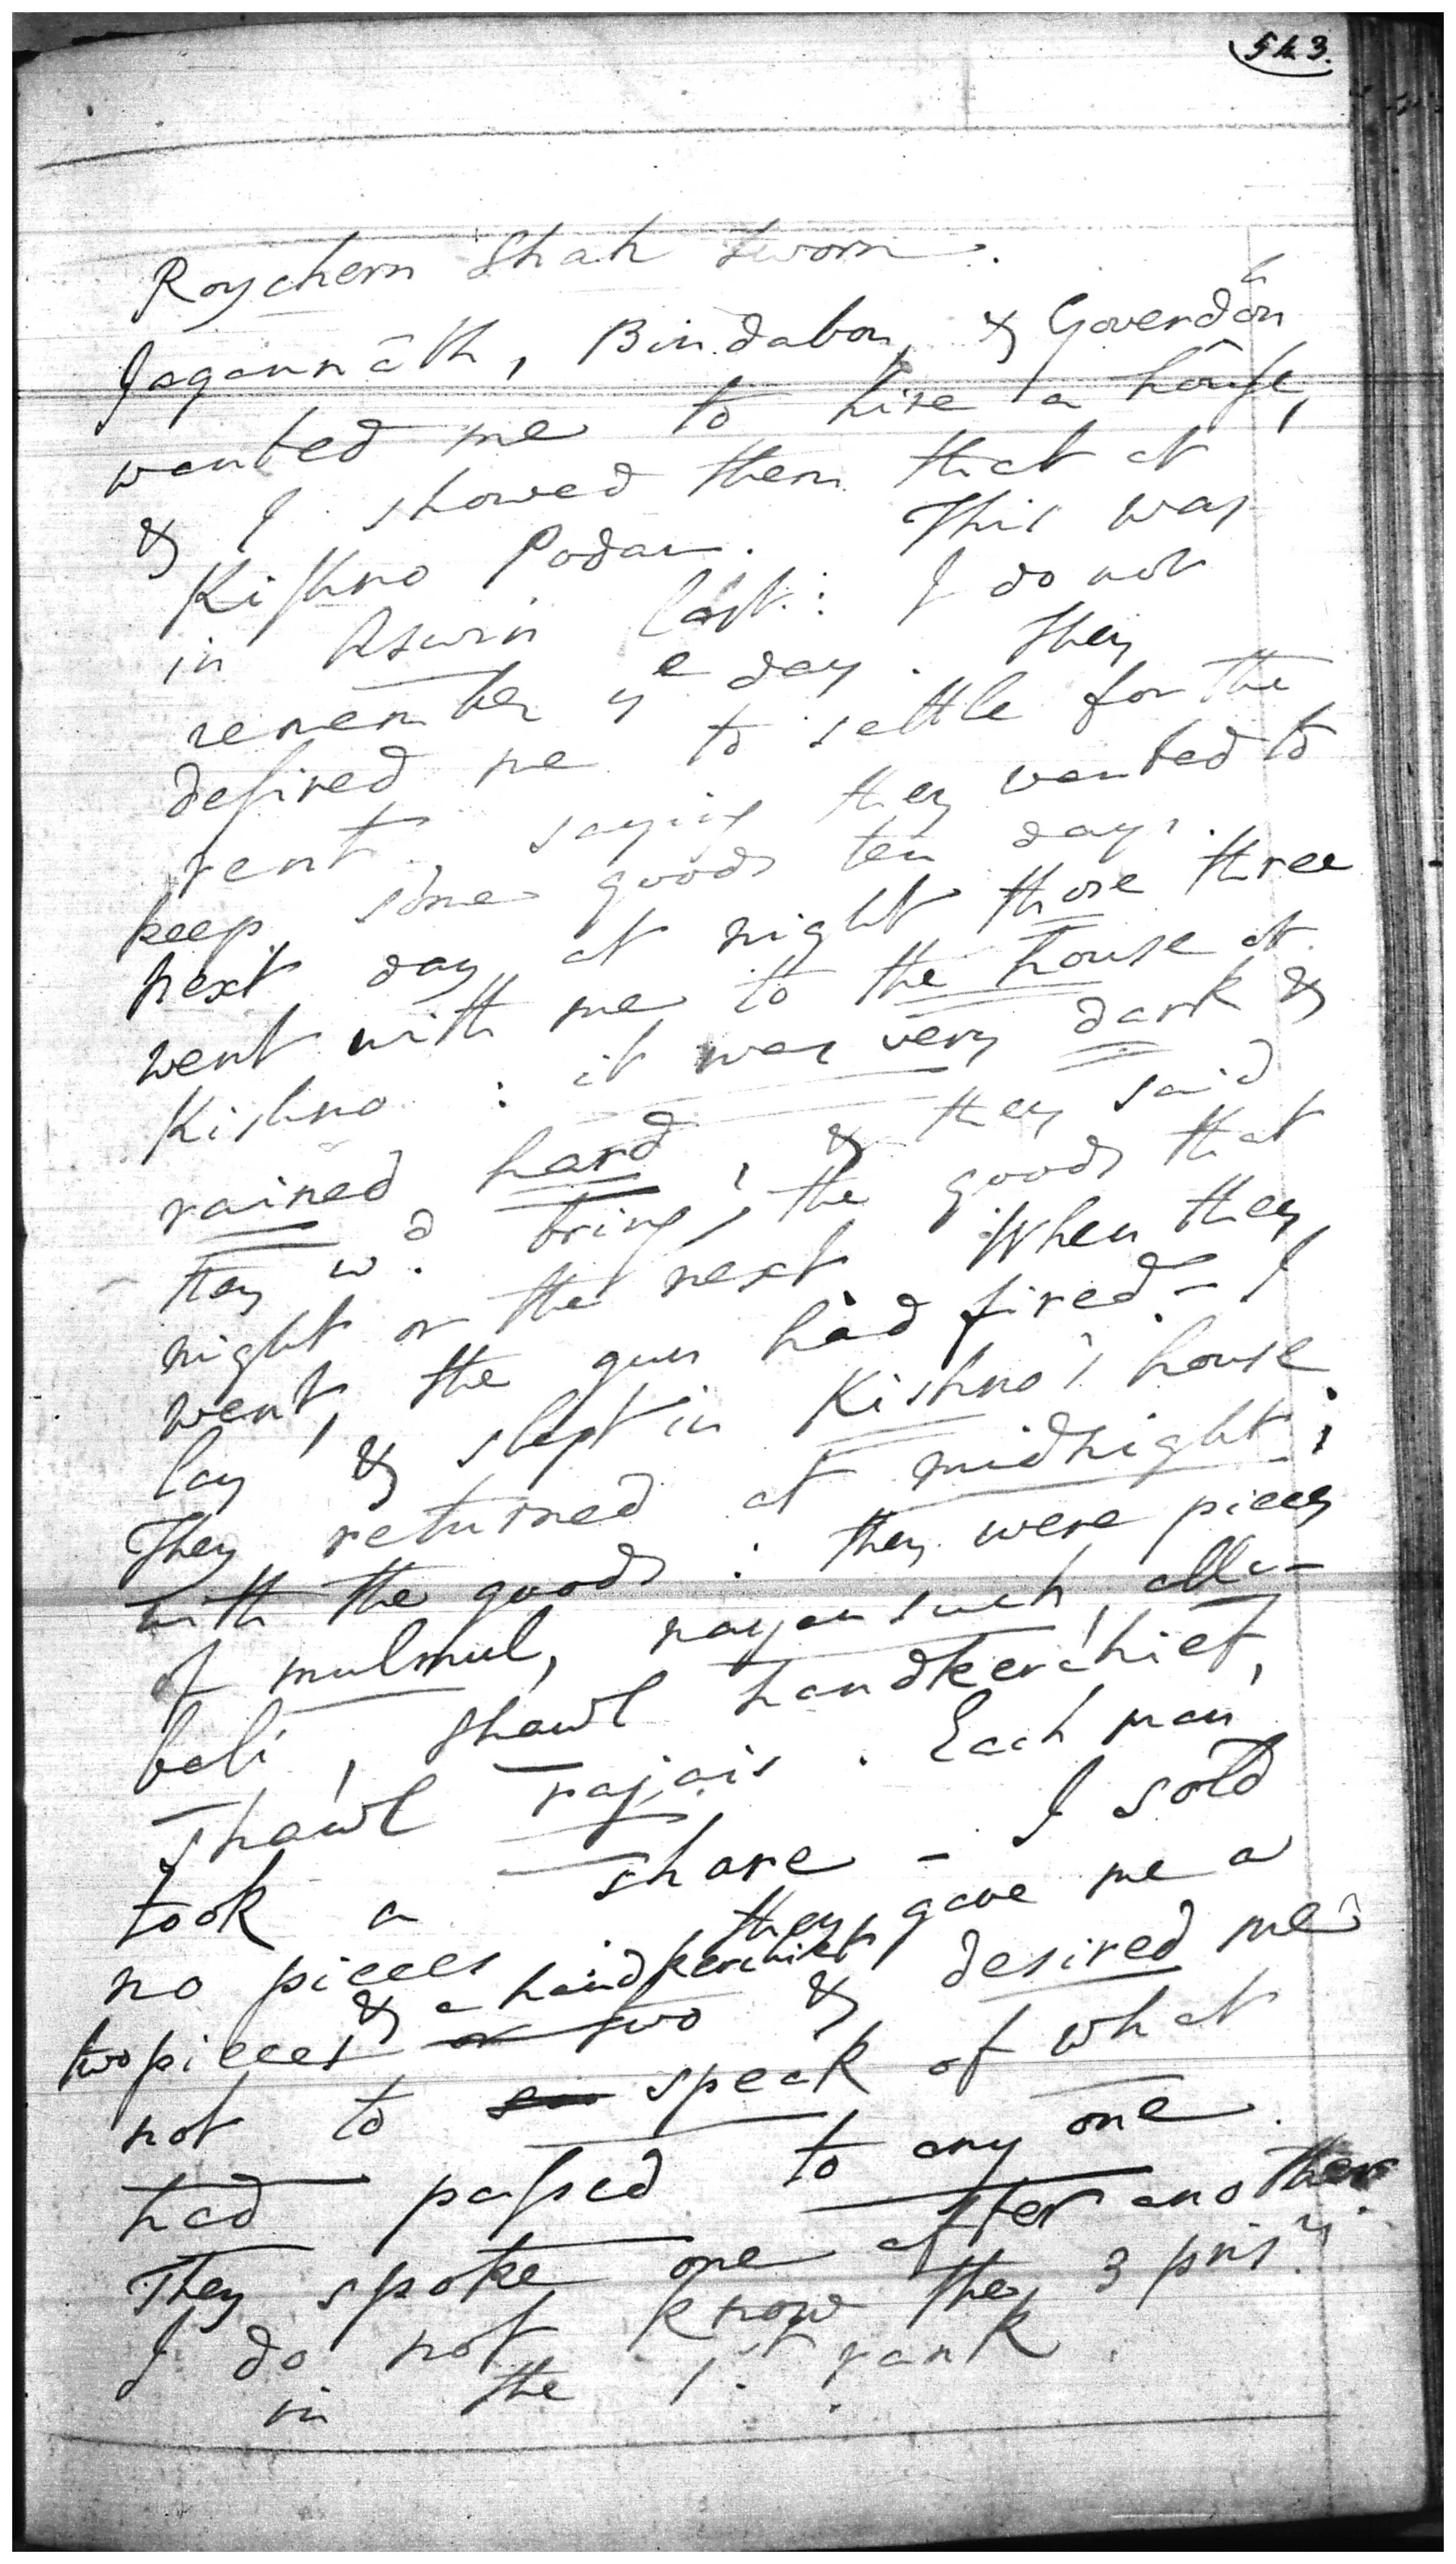 543.
Roychern Shah sworn.
Jagannāth, Bindabon, & Goverdōn
wanted me to hire a house,
& I showed them that of
Kishno Podar. This was
in Aswin last: I do not
remember yᵉ day. They
desired me to settle for the
rent, saying they wanted to
keep some goods ten days.
next day, at night those three
went with me to the house of
Kishno: it was very dark &
rained hard, & they said
they wᵈ. bring the goods that
night or the next. When they
went, the gun had fired - I
lay & slept in Kishno's house
They returned at midnight;
with the goods: they were pieces
of mulmul, nayansuch, alla-
bali, shawl handkerchief,
shawl rajais. Each man
took a share - I sold
no pieces they gave me a
two pieces & a handkerchief or two & desired me
not to speak of what
had passed to any one.
They spoke one after another.
I do not know the 3 prisʳˢ.
in the 1ˢᵗ. rank.